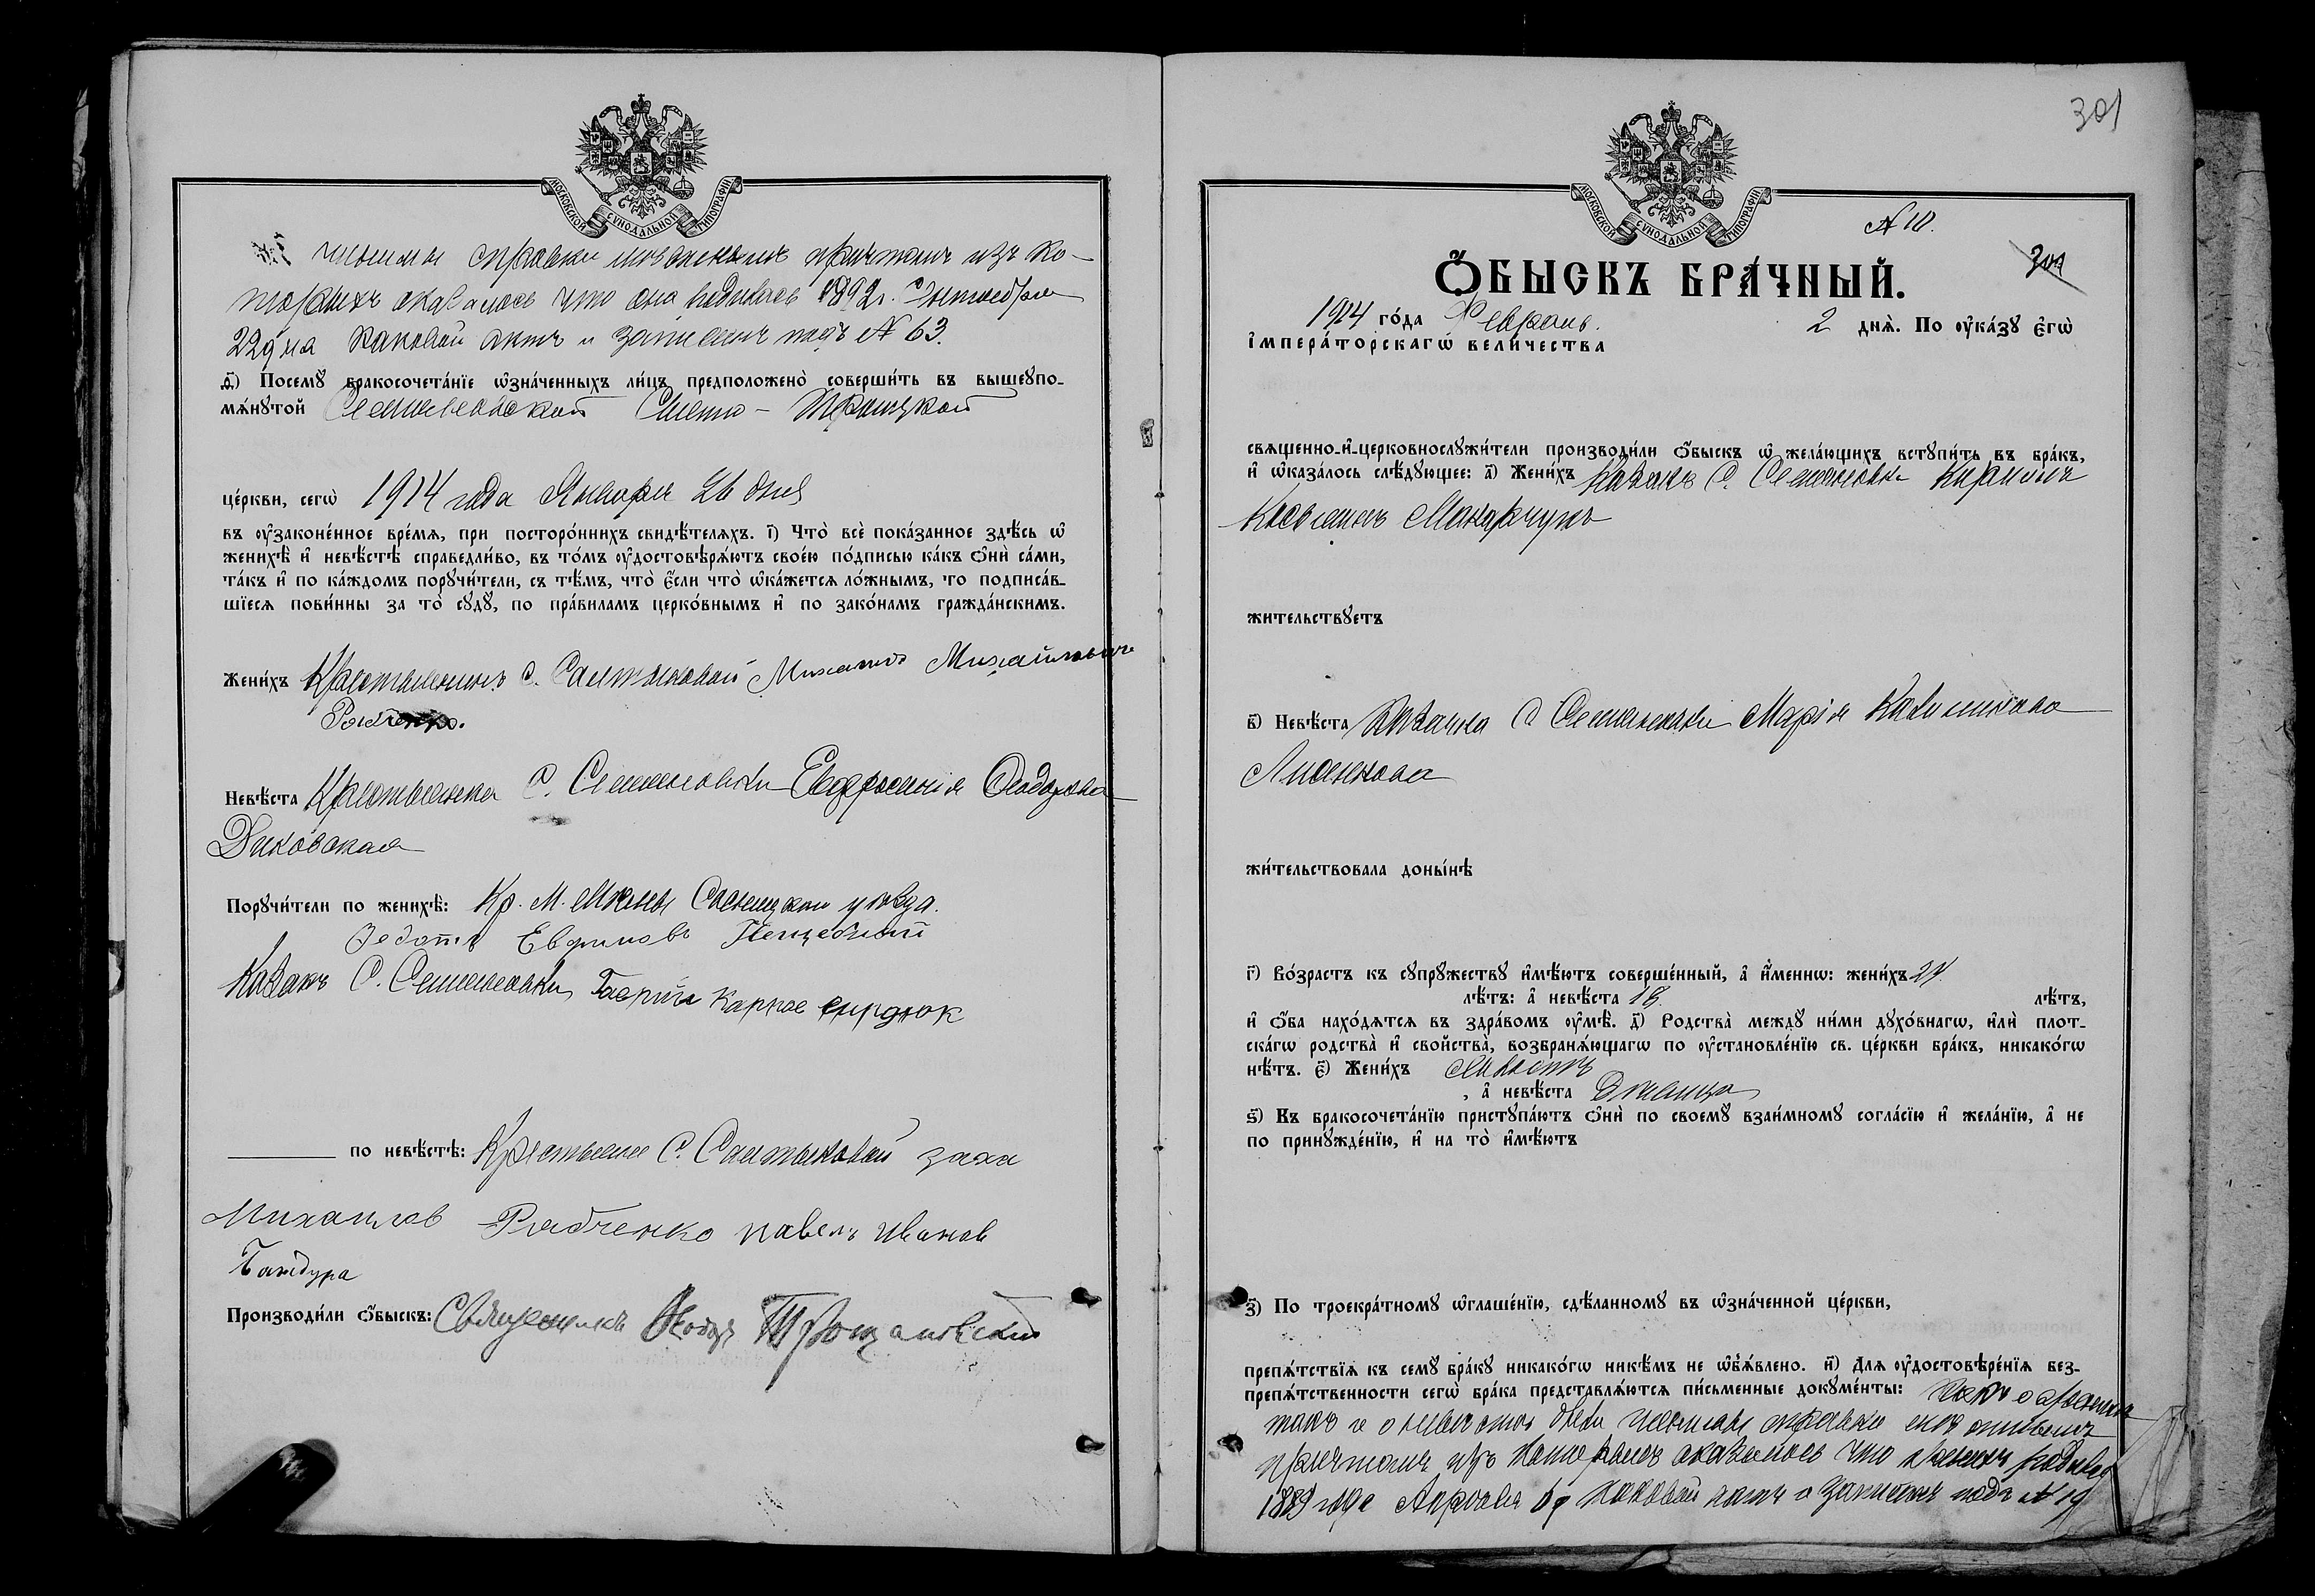 МОСКОВСКОЙ СѴНОДАЛЬНОЙ ТИПОГРАФІИ
чинены справки мѣстнымъ причтомъ изъ ко-
торыхъ оказалось что она родилась 1892 г. Сентября
22 дня каковой актъ и записанъ подъ № 63.
д҃) Посемꙋ бракосочета́нїе ѡ҆зна́ченныхъ ли́цъ предположено̀ соверши́ть въ вышеꙋпо-
мѧ́нꙋтой Семеновской Свято-Троицкой
це́ркви, сегѡ̀ 1914 года Января 26 дня
въ ᲂу҆законе́нное вре́мѧ, при посторо́ннихъ свидѣ́телѧхъ. і҃) Что̀ всѐ пока́занное здѣ́сь ѡ҆
женихѣ̀ и҆ невѣ́стѣ справедли́во, въ то́мъ ᲂу҆достовѣрѧ́ютъ свое́ю по́дписью ка́къ ѻ҆нѝ са́ми,
та́къ и҆ по ка́ждомъ порꙋчи́тели, съ тѣ́мъ, что̀ є҆́сли что̀ ѡ҆ка́жетсѧ ло́жнымъ, то подписа́в-
шїесѧ пови́нны за то̀ сꙋдꙋ̀, по пра́виламъ церко́внымъ и҆ по зако́намъ гражда́нскимъ.
Жени́хъ Крестьянинъ с. Салтыковой Михаилъ Михайловичъ
Рябченко.
Невѣ́ста Крестьянка с. Семеновки Евфросинія Ѳеодорова
Диковская
Порꙋчи́тели по женихѣ̀: Кр. М. Мены Сосницкаго уѣзда.
Федотъ Ефимовъ
Казакъ С. Семеновки Гаврііл Карпов Сирдюк
по невѣ́стѣ: Крестьяне С. Салтыковой заха
Михаилов Рябченко павелъ Иванов
Бандура
Производи́ли ѻ҆́быскъ: Священникъ Ѳеодоръ
301
МОСКОВСКОЙ СѴНОДАЛЬНОЙ ТИПОГРАФІИ
№ 10.
ѺБЫСКЪ БРА́ЧНЫЙ.
1914 го́да Февраль. 2 днѧ̀. По ᲂу҆ка́зꙋ є҆гѡ̀
і҆мпера́торскагѡ вели́чества
свѧщенно-и҆-церковнослꙋжи́тели производи́ли ѻ҆́быскъ ѡ҆ жела́ющихъ встꙋпи́ть въ бра́къ,
и҆ ѡ҆каза́лось слѣ́дꙋющее: а҃) Жени́хъ Казакъ С. Семеновки Кирилъ
Косьминъ
жи́тельствꙋетъ
в҃) Невѣ́ста Казачка С Семеновки Марія Калиникова
жи́тельствовала доны́нѣ
г҃) Во́зрастъ къ сꙋпрꙋ́жествꙋ и҆мѣ́ютъ соверше́нный, а҆ и҆́меннѡ: жени́хъ 24
лѣ́тъ: а҆ невѣ́ста 18. лѣ́тъ,
и҆ ѻ҆́ба нахо́дѧтсѧ въ здра́вомъ ᲂу҆мѣ̀. д҃) Родства̀ междꙋ̀ ни́ми дꙋхо́внагѡ, и҆лѝ плот-
ска́гѡ родства̀ и҆ свойства̀, возбранѧ́ющагѡ по ᲂу҆становле́нїю св. це́ркви бра́къ, никако́гѡ
нѣ́тъ. є҃) Жени́хъ холостъ
, а҆ невѣ́ста дѣвица
ѕ҃) Къ бракосочета́нїю пристꙋпа́ютъ ѻ҆нѝ по своемꙋ̀ взаи́мномꙋ согла́сїю и҆ жела́нїю, а҆ не
по принꙋжде́нїю, и҆ на то̀ и҆мѣ́ютъ
з҃) По троекра́тномꙋ ѡ҆глаше́нїю, сдѣ́ланномꙋ въ ѡ҆зна́ченной це́ркви,
препѧ́тствїѧ къ семꙋ̀ бра́кꙋ никако́гѡ никѣ́мъ не ѡ҆б̾ѧ́влено. и҃) Для ᲂу҆достовѣре́нїѧ без-
препѧ́тственности сегѡ̀ бра́ка представлѧ́ютсѧ пи́сьменные докꙋме́нты: какъ о женихѣ
такъ и о невѣстѣ были чинены справки мѣстнымъ
причтомъ изъ которыхъ оказалось что женихъ родился
1889 года Апрѣля каковой актъ и записанъ подъ № 19